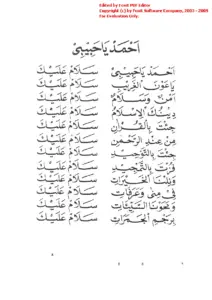 Edited by Foxit PDF Editor
Copyright (c) by Foxit Software Company, 2003 - 2009
For Evaluation Only.
احمد ياحبيبي
احمد ياحبيبي سلام عليك
ياعون الغريب سلام عليك
امن وسلام سلام عليك
دينك الاسلام سلام عليك
جئت بالقران سلام عليك
من عند الرحمن سلام عليك
جئت بالتوحيد سلام عليك
سلام عليك
الخيرات سلام عليك
في منى وعرفات سلام عليك
السيئات سلام عليك
برجم الجمرات سلام عليك